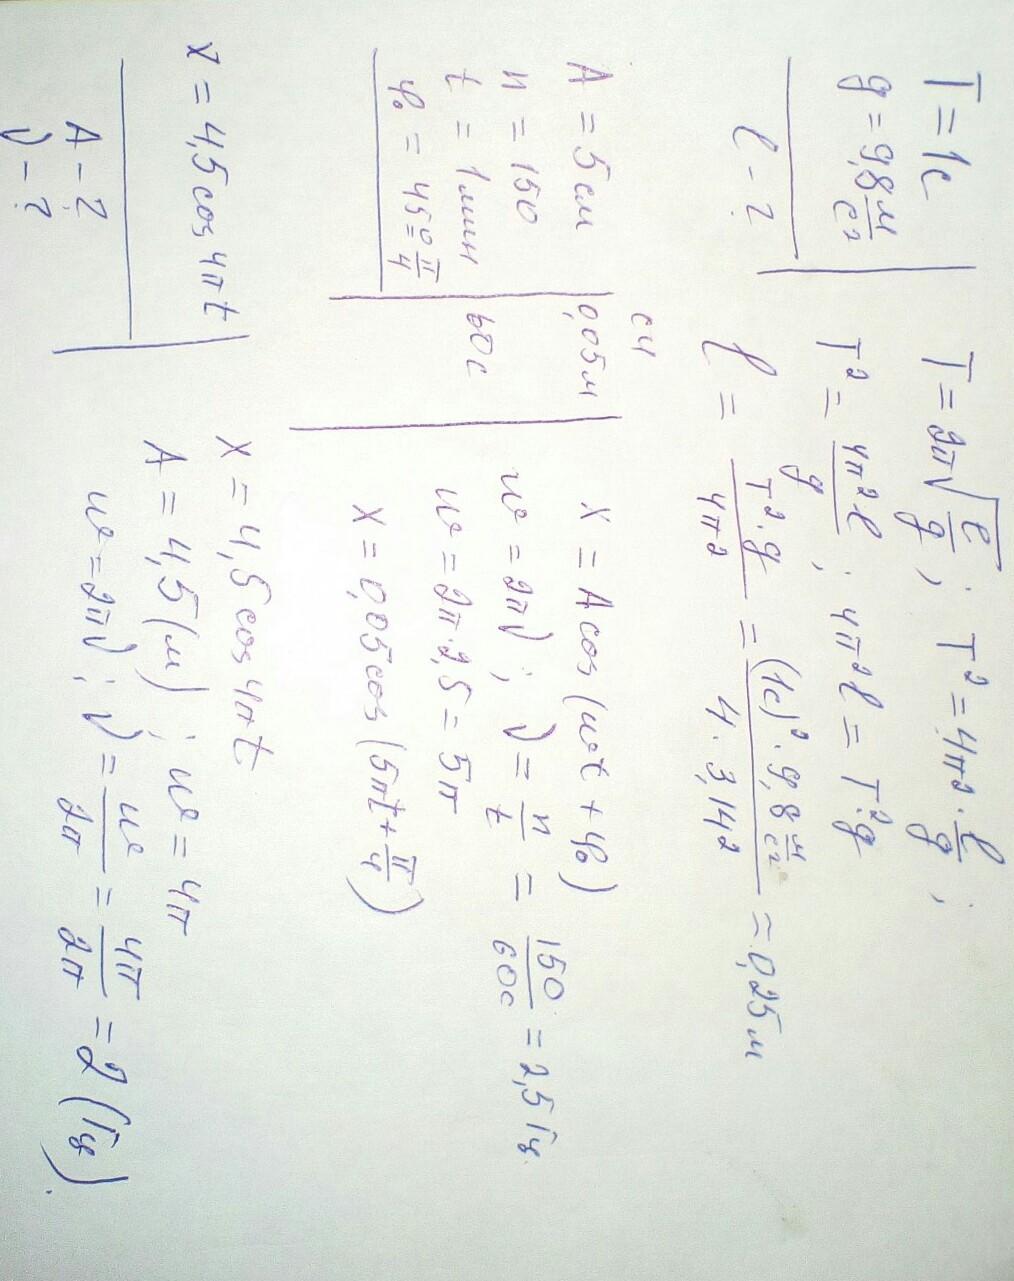 T = 1с
g = 9,8 м/с²
l - ?
T = 2π√(l/g) ; T² = 4π² · l/g ;
T² = 4π²l/g ; 4π²l = T²g
l = T²·g/4π² = (1с)²·9,8 м/с²/4·3,14² = 0,25 м
СИ
A = 5 см 0,05 м
n = 150
t = 1 мин 60 с
φ₀ = 45° = π/4
X = A cos (ωt + φ₀)
ω = 2πν ; ν = n/t = 150/60с = 2,5 Гц
ω = 2π·2,5 = 5π
X = 0,05 cos (5πt + π/4)
X = 4,5 cos 4πt
A - ?
ν - ?
X = 4,5 cos 4πt
A = 4,5 (м) ; ω = 4π
ω = 2πν ; ν = ω/2π = 4π/2π = 2 (Гц).